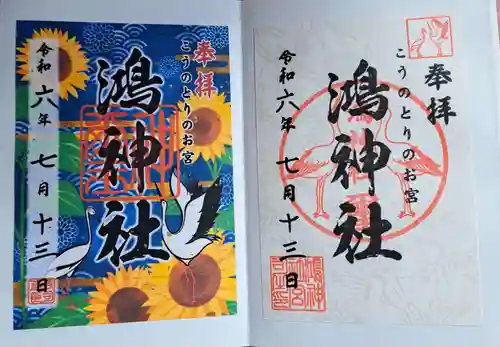 奉拝
こうのとりのお宮
鴻神社
令和六年七月十三日
奉拝
こうのとりのお宮
鴻神社
令和六年七月十三日